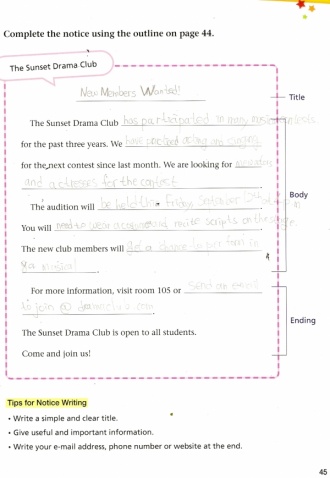 Complete the notice using the outline on page 44.
The Sunset Drama Club
New Members Wanted!
Title
The Sunset Drama Club has participated in many
for the past three years. We have practiced acting and singing
for the next contest since last month. We are looking for
and actresses for the contest.
Body
The audition will be held this Friday,
You will need to wear a costume and recite scripts on the stage.
The new club members will get a chance to perform in
a musical.
For more information, visit room 105 or send an email
to join @
Ending
The Sunset Drama Club is open to all students.
Come and join us!
Tips for Notice Writing
• Write a simple and clear title.
• Give useful and important information.
• Write your e-mail address, phone number or website at the end.
45